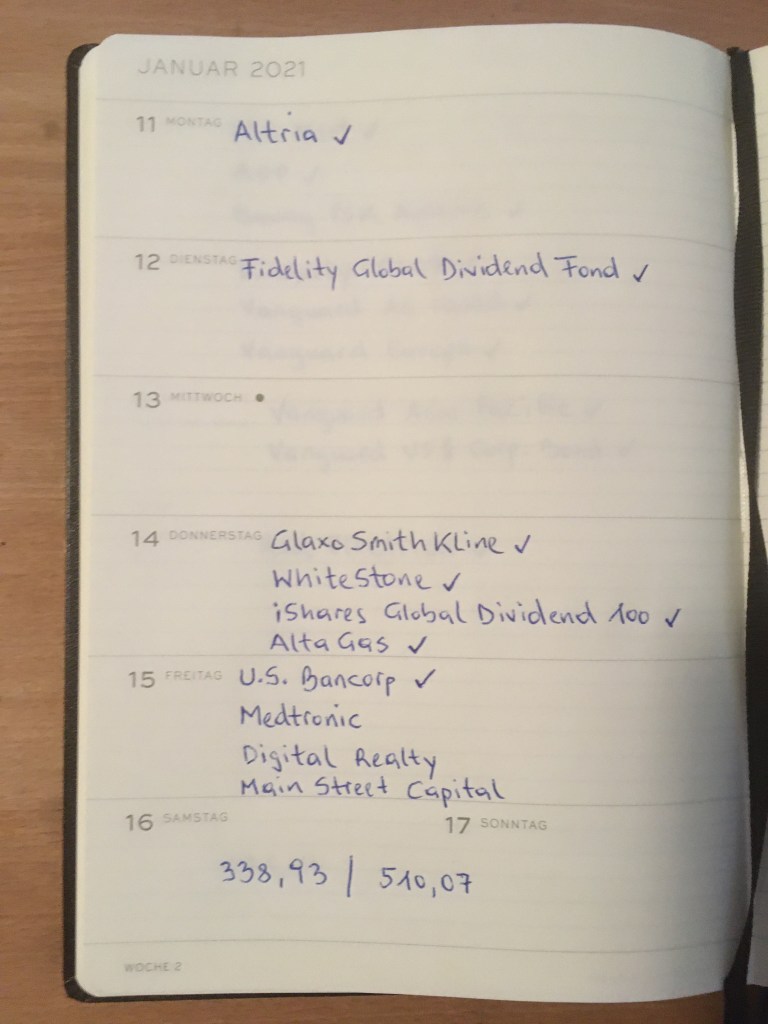 JANUAR 2021
11 MONTAG Altria ✓
12 DIENSTAG Fidelity Global Dividend Fond ✓
13 MITTWOCH
14 DONNERSTAG GlaxoSmithKline ✓
WhiteStone ✓
iShares Global Dividend 100 ✓
AltaGas ✓
15 FREITAG U.S. Bancorp ✓
Medtronic
Digital Realty
Main Street Capital
16 SAMSTAG 17 SONNTAG
338,93 | 510,07
WOCHE 2